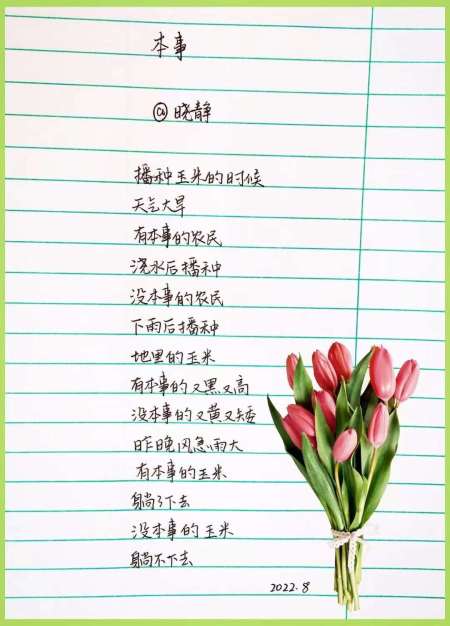 本事
@晓静
播种玉米的时候
天气大旱
有本事的农民
浇水后播种
没本事的农民
下雨后播种
地里的玉米
有本事的又黑又高
没本事的又黄又矮
昨晚风急雨大
有本事的玉米
躺了下去
没本事的玉米
躺不下去
2022.8